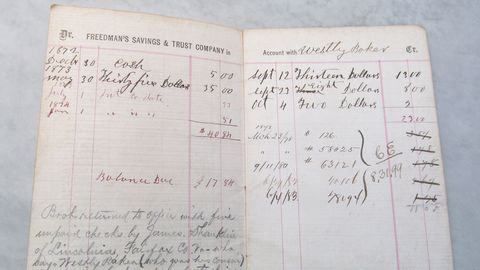 Dr. FREEDMAN'S SAVINGS & TRUST COMPANY in
1872
Dec 30 Cash 5 00
1873
May 30 Thirty five Dollars 35 00
July 1 Int to date 33
1874
Jan 1 " " " 51
$ 40 84
Balance Due £ 17 84
Book returned to office with five
unpaid checks by James
of Lincolnia, Fairfax Co. Va who
says Westly Baker (who was his cousin)
Account with Westly Baker Cr.
Sept 12 Thirteen Dollars 13 00
Sept 23 Eight Dollars 8 00
Oct 4 Two Dollars 2
23.00
Mch 23/78 # 126
" " # 58025
9/11/80 # 63121
83
6/4/83 48194
8,31,99